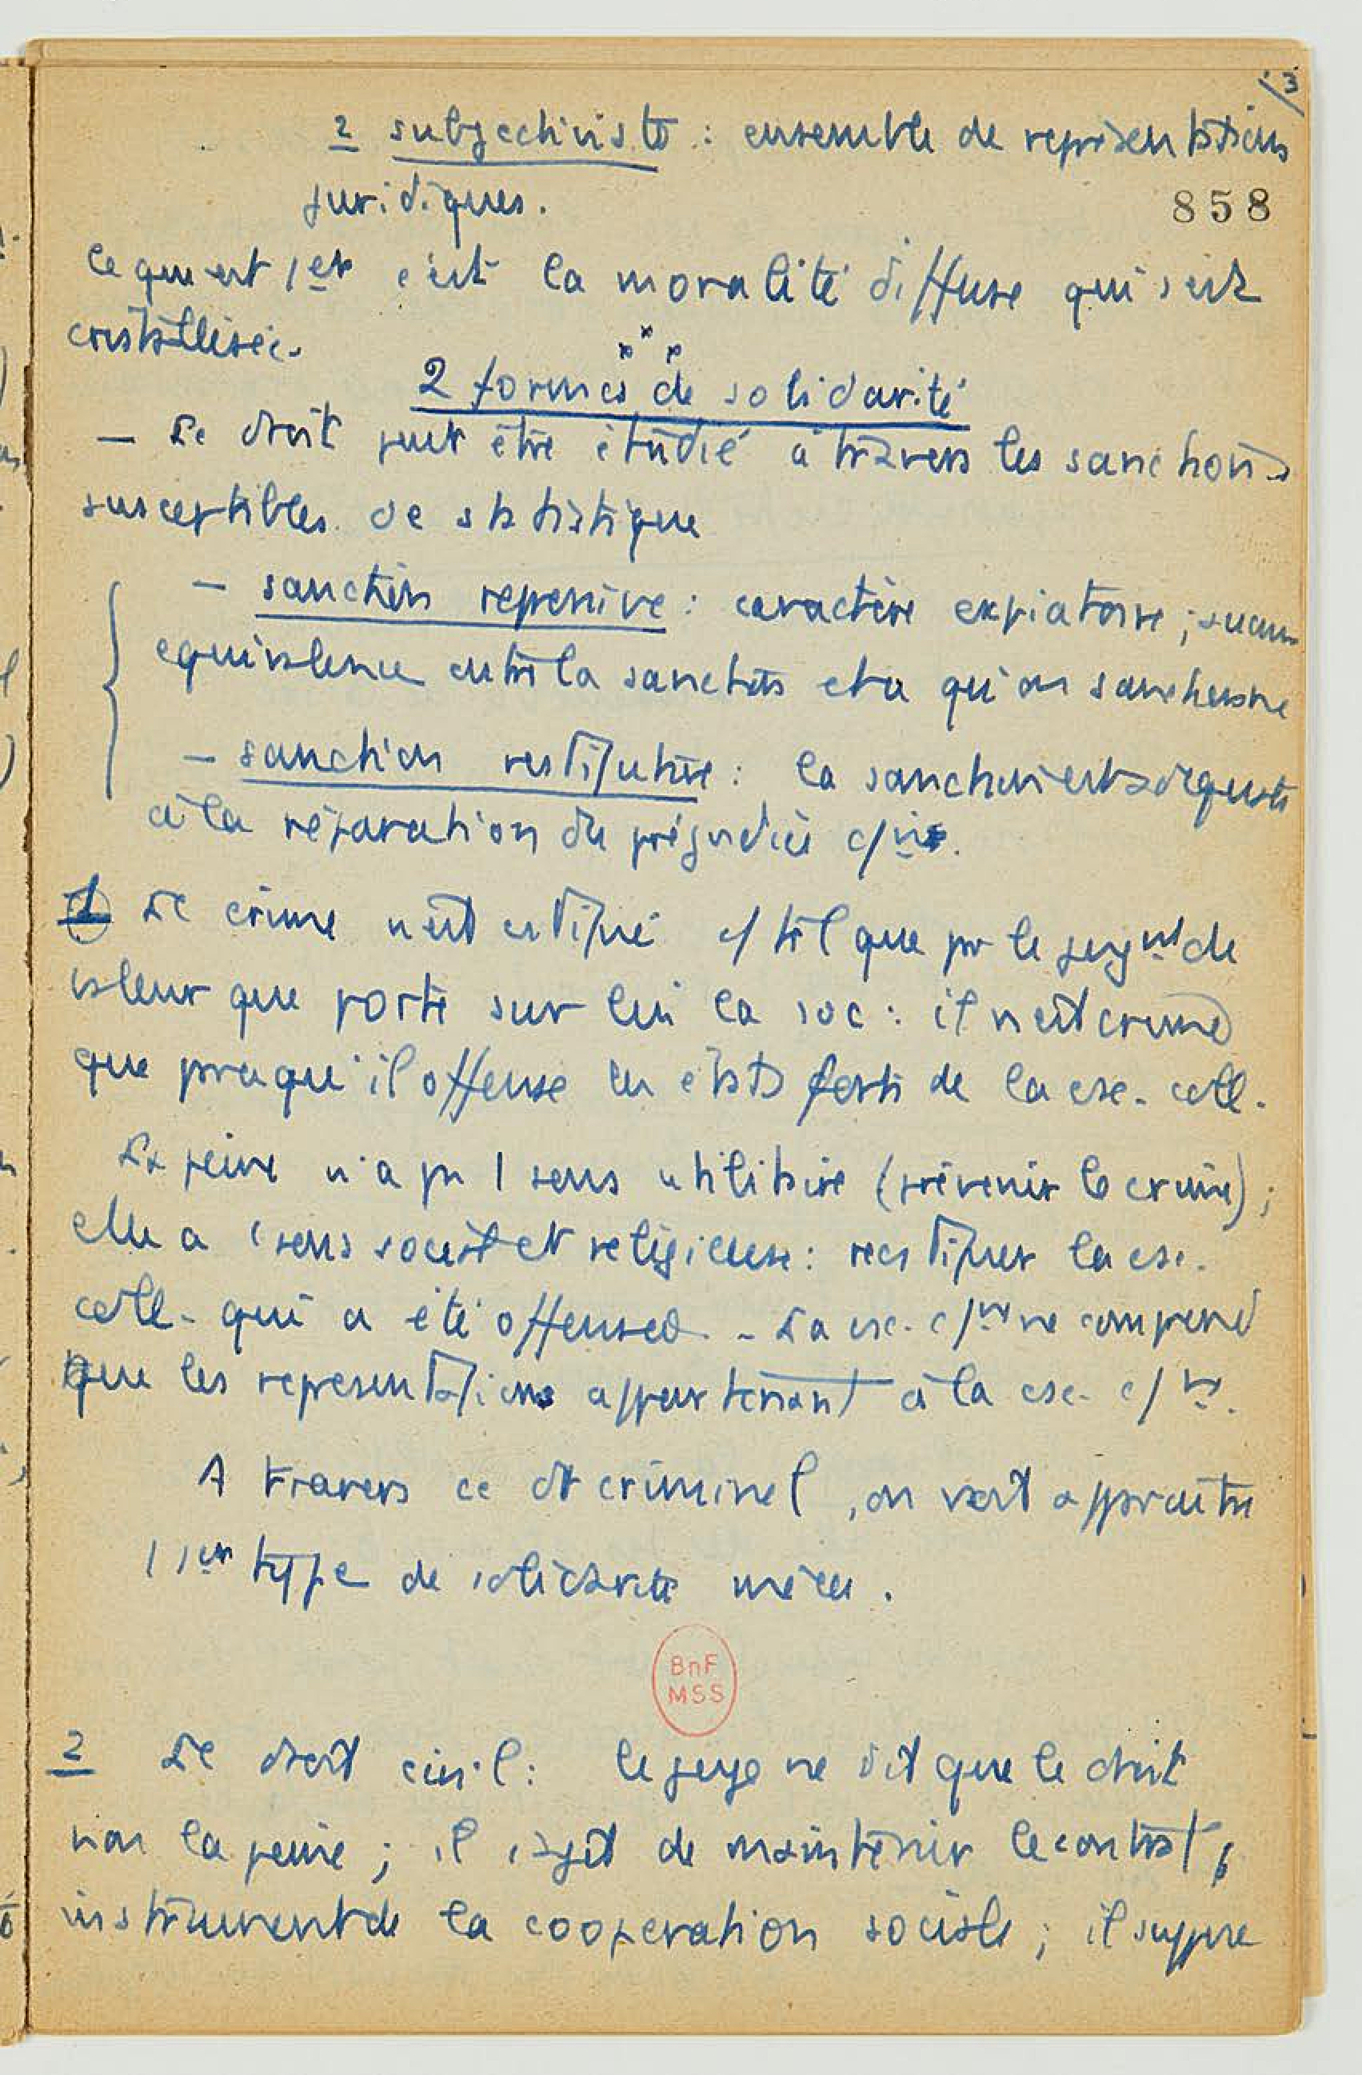 13
2 subjectiviste : ensemble de représentations
juridiques.
858
Ce qui est 1er c'est la moralité diffuse qui s'est
cristallisée.
x x x
2 formes de solidarité
— Le droit peut être étudié à travers les sanctions
susceptibles de statistique
— sanction repressive : caractère expiatoire ; aucune
equivalence entre la sanction et ce qu'on sanctionne
— sanction restitutive : la sanction est adéquate
à la réparation du préjudice c/mis.
1 Le crime n'est estimé c/ tel que pr le jugnt de
valeur que porte sur lui la soc : il n'est crime
que parce qu'il offense les états forts de la csc. coll.
La peine n'a pas 1 sens utilitaire (prévenir le crime) ;
elle a 1 sens social et religieuse : restituer la csc.
coll. qui a été offensée. - La csc. c/ne ne comprend
que les représentations appartenant à la csc. c/ne.
A travers ce dt criminel, on voit apparaître
1 1er type de solidarité méca.
BnF
MSS
2 Le droit civil : le juge ne dit que le droit
non la peine ; il s'agit de maintenir le contrat,
instrument de la cooperation sociale ; il suppose